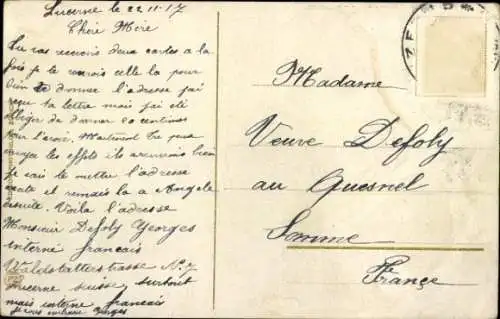 Lucerne le 22.11.17
Chère Mère
Tu vas recevoir deux cartes a la
fois je te renvois celle la pour
bien te donner l'adresse j'ai
reçu ta lettre mais j'ai été
obliger de donner 20 centimes
pour l'avoir. Maintenant tu peux
envoyer les effets ils arriverons bien
je vais te mettre l'adresse
exacte et remais la a Angele
ensuite. Voila l'adresse
Monsieur Defoly Georges
interné français
Waldstatterstrasse No 7
Lucerne suisse, surtout
mais interné français
Madame
Veuve Defoly
au Quesnel
Somme
France